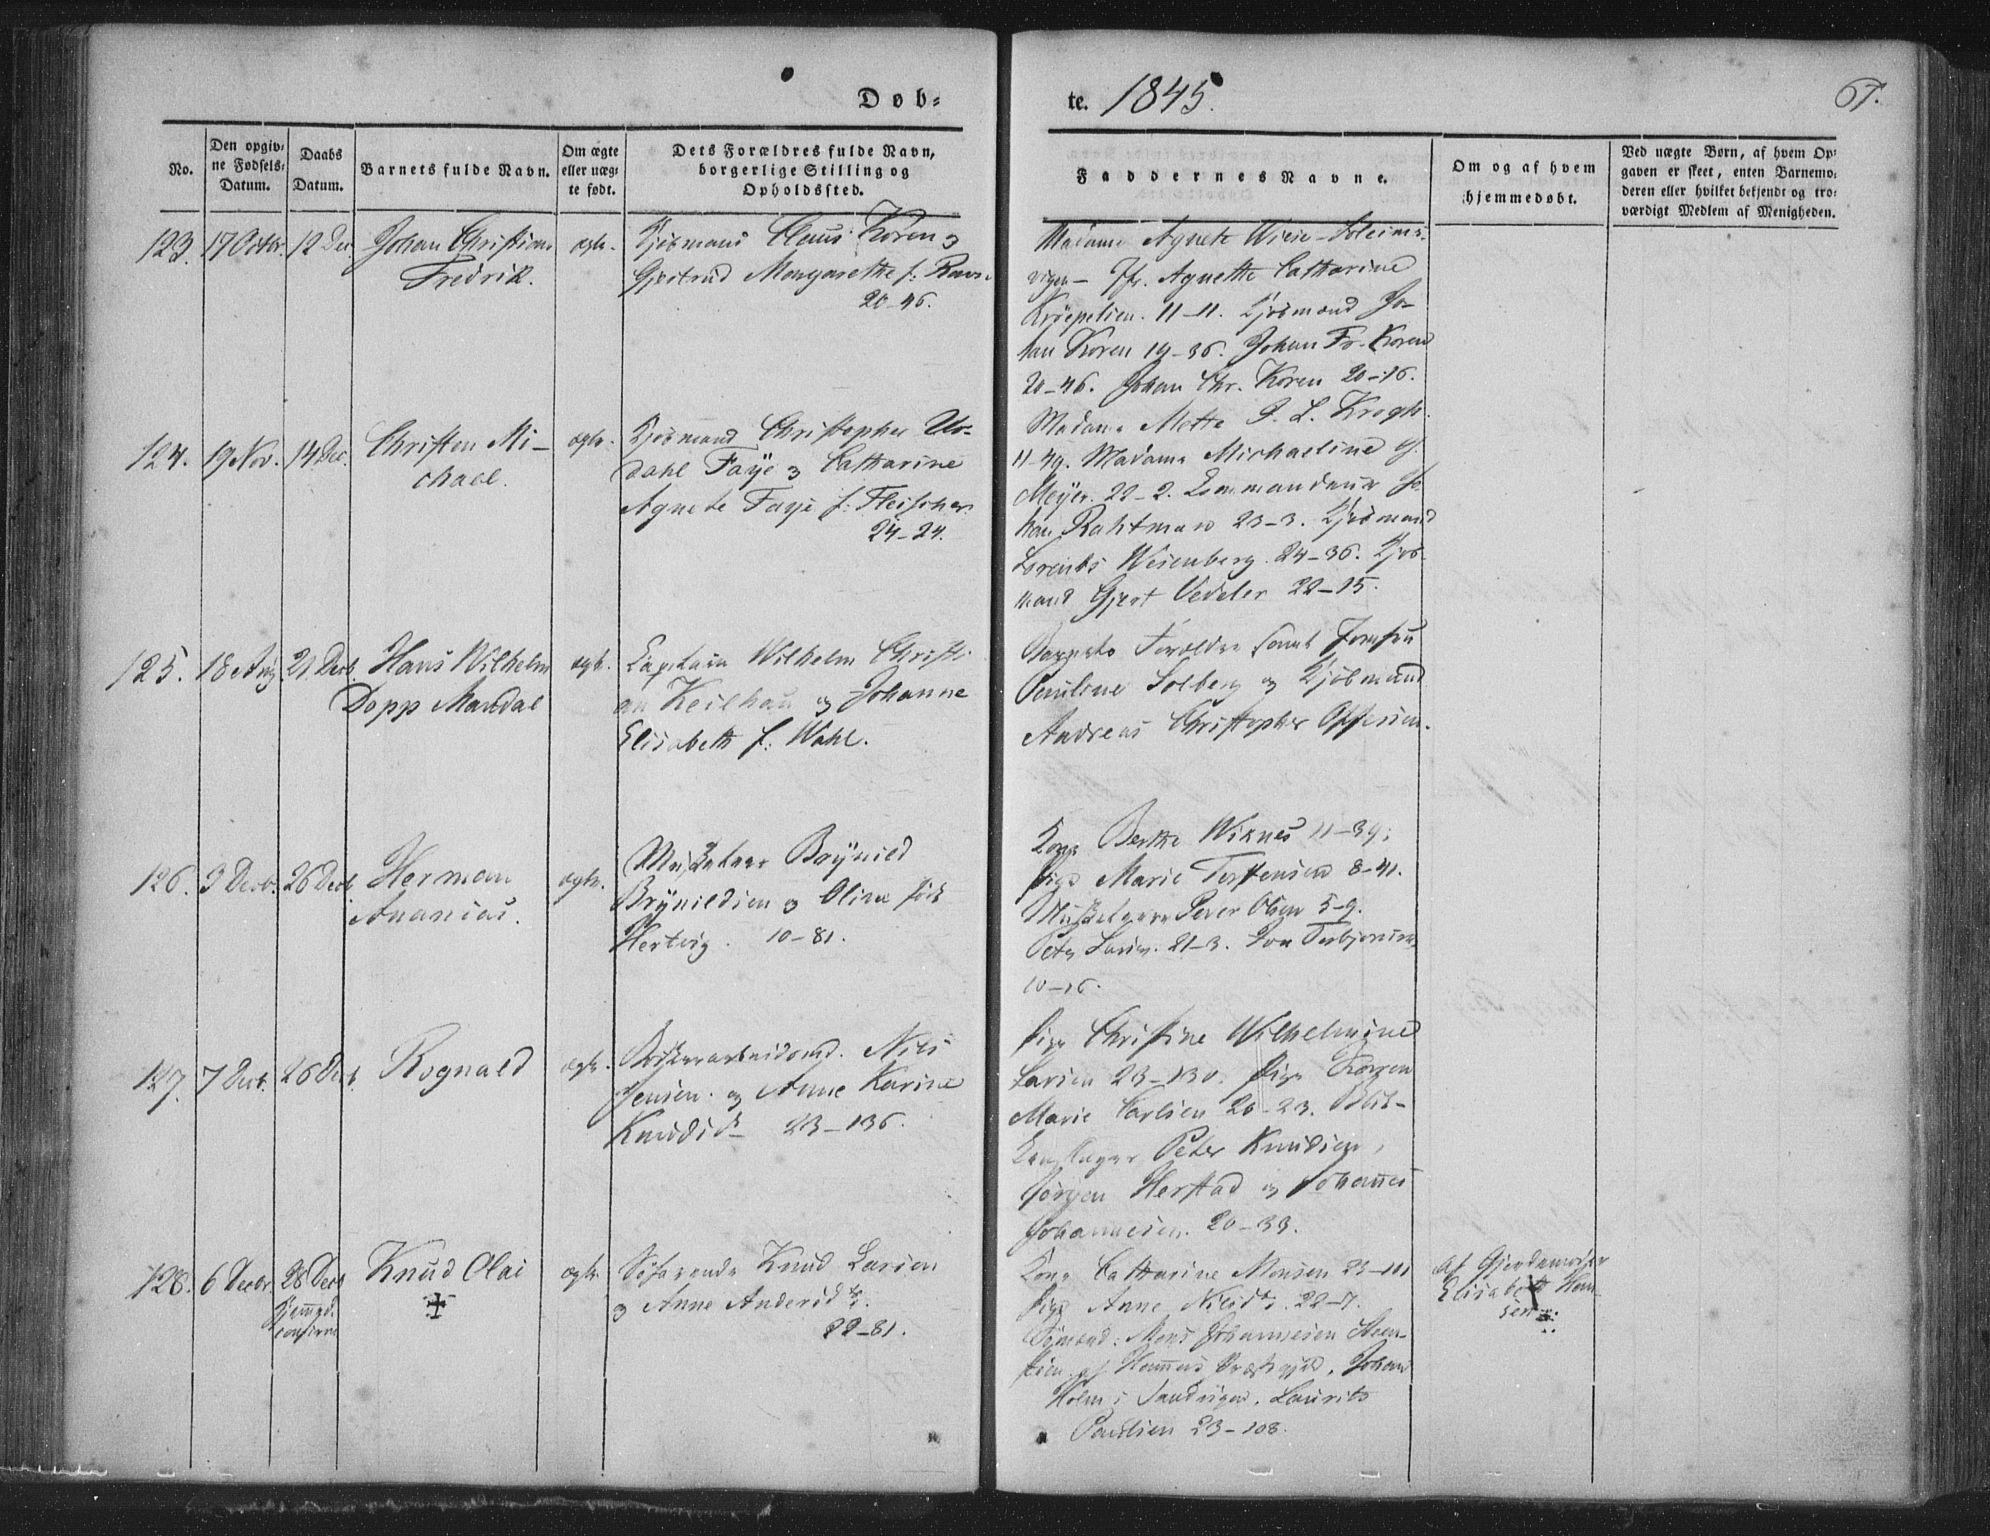 Døb-
te. 1845.
67.
No.
Den opgiv-
ne Fødsels-
Datum.
Daabs
Datum.
Barnets fulde Navn.
Om ægte
eller uæg-
te født.
Dets Forældres fulde Navn,
borgerlige Stilling og
Opholdssted.
Faddernes Navne.
Om og af hvem
hjemmedøbt.
Ved uægte Børn, af hvem Op-
gaven er skeet, enten Barnemo-
deren eller hvilket bekjendt og tro-
værdigt Medlem af Menigheden.
123. 17 Octbr. 12 Dec. Johan Christian
Fredrik.
ægte.
Kjøbmand Claus Koren &
Gjertrud Margarethe f:
20-46.
Madame Agnete Wiese
Jfr. Agnette Catharine
11-11. Kjøbmand Jo-
han Koren 19-36. Johan Fr. Koren
20-46. Johan Chr. Koren 20-16.
124. 19 Nov. 14 Dec. Christen Mi-
chael.
ægte.
Kjøbmand Christopher
dahl Faye & Catharine
Agnete Faye f: Fleischer
24-24.
Madame Mette J. L. Krogh.
11-49. Madame Michaeline G.
Meyer. 22-2. Commandeur Jo-
han Rahtman 23-3. Kjøbmand
Lorents Wesenberg. 24-36. Kjøb-
mand Gjert Vedeler 22-15.
125. 18 Aug. 21 Decb. Hans Wilhelm
Dopp Mandal
ægte.
Captain Wilhelm Christi-
an Keilhau og Johanne
Elisabeth f. Wahl.
Barnets Forældre samt Jomfru
Pauline Solberg og Kjøbmand
Andreas Christopher
126. 3 Decb. 26 Decb. Herman
Ananias.
ægte.
Musketeer Brynild
Brynildsen & Oline født
Hertvig. 10-81.
Kone Berthe Wiknes 11-39.
Pige Marie Torstensen 8-41.
Musketeer Peder Olsen 5-9.
Peter Larsen. 21-3. Jon
10-16.
127. 7 Decb. 26 Decb. Rognald
ægte.
Nils
Jensen. og Anne Karine
Knudsdtr 23-136.
Pige Christine Wilhelmine
Larsen 23-130. Pige Karen
Marie Carlsen 20-23.
Peter Knudsen,
Jørgen Herstad og Johannes
Johannesen. 20-33.
128. 6 Decbr. 28 Decb Knud Olai
ægte
Søfarende Knud Larsen
& Anne Andersdtr.
22-81.
Kone Catharine Monsen 23-101
Pige Anne Nilsdtr. 22-7.
Mons Johannesen
af Hammers Præstegjeld. Johan
Holm i Sandvigen. Laurits
Paulsen 23-108.
Af Gjordemoder
Elisabeth Han-
sen.